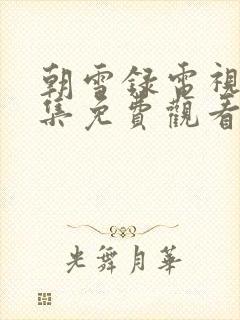 朝雪録電視
集免費觀看
光舞月華